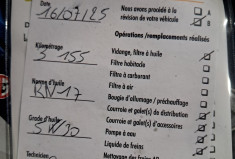 Date 16/07/25
Nous avons procédé à la
révision de votre véhicule
Opérations/remplacements réalisés
Kilométrage
Vidange, filtre à huile
155
Filtre habitacle
Filtre à carburant
Filtre à air
Bougie d'allumage / préchauffage
Courroie et galet(s) de distribution
Grade d'huile
Courroie et galet(s) d'accessoires
5W30
Pompe à eau
Liquide de freins
Technicien
Nettoyage des freins